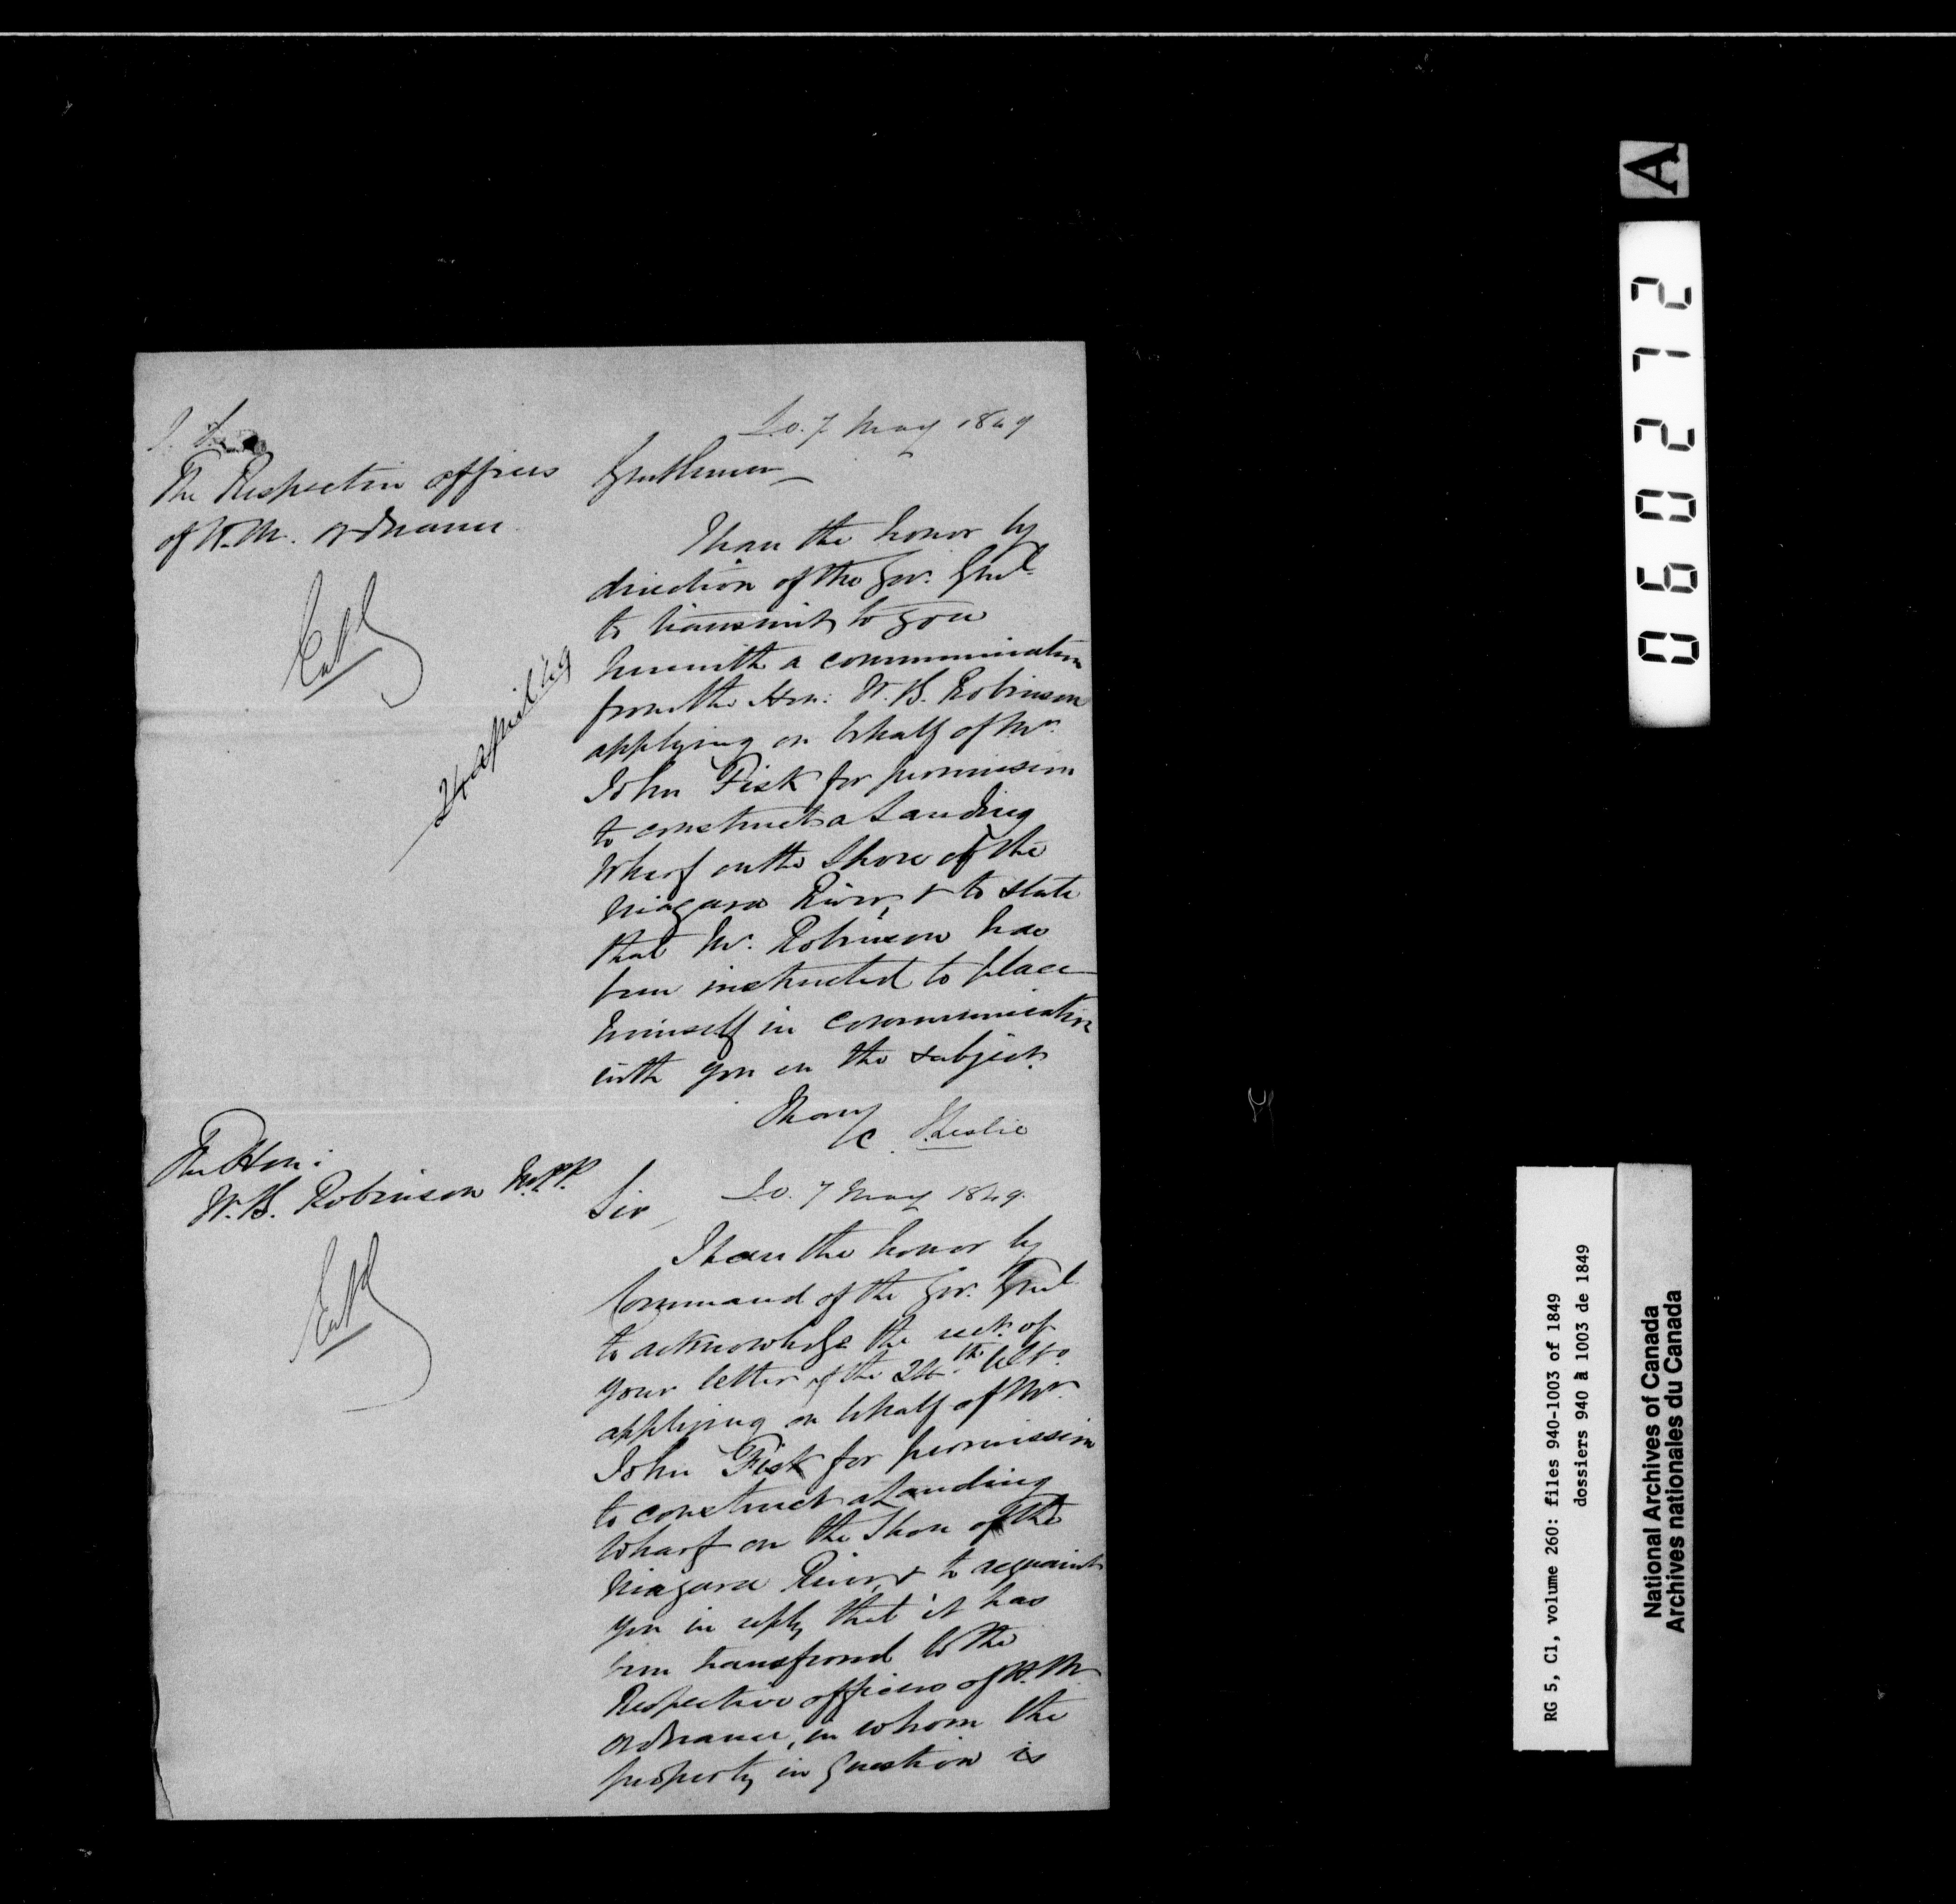 S.O. 7 May 1849
The Respective officers
of H.M. Ordnance
Entd
24 April '49
Gentlemen
I have the honor by
direction of the Gov. Genl.
to transmit to you
herewith a communication
from the Hon: W. B. Robinson
applying on behalf of Mr.
John Fisk for permission
to construct a Landing
Wharf on the Shore of the
Niagara River, & to state
that Mr. Robinson has
been instructed to place
himself in communication
with you on the subject.
I have
&c J. Leslie
The Hon:
W. B. Robinson M.P.P.
Entd
S.O. 7 May 1849.
Sir,
I have the honor by
Command of the Gov. Genl
to acknowledge the rect. of
your letter of the 24th. Ulto.
applying on behalf of Mr.
John Fisk for permission
to construct a Landing
Wharf on the Shore of the
Niagara River, & to acquaint
you in reply that it has
been transferred to the
Respective officers of H.M.
Ordnance, in whom the
property in question is
A
060272
RG 5, C1, volume 260: files 940-1003 of 1849
dossiers 940 à 1003 de 1849
National Archives of Canada
Archives nationales du Canada